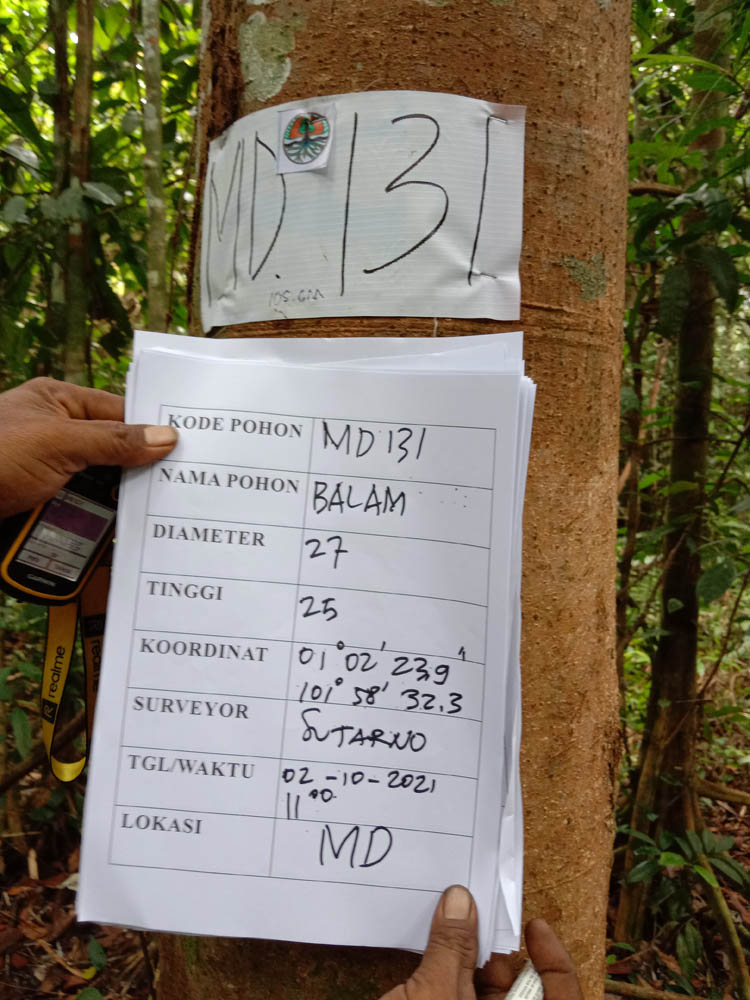 MD. 131
105.GM
KODE POHON MD 131
NAMA POHON BALAM
DIAMETER 27
TINGGI 25
KOORDINAT 01° 02' 23,9"
101° 58' 32.3
SURVEYOR SUTARNO
TGL/WAKTU 02-10-2021
11°°
LOKASI MD
GARMIN
realme